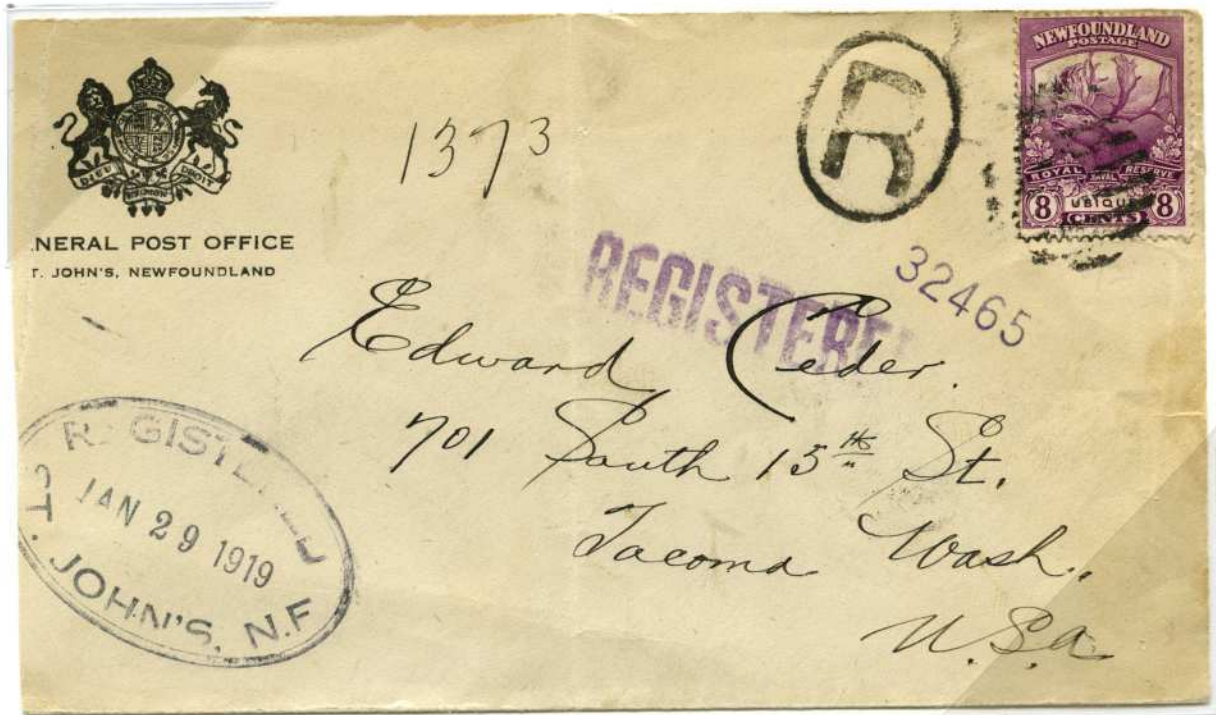 DIEU ET MON DROIT
ENERAL POST OFFICE
T. JOHN'S, NEWFOUNDLAND
1373
R
NEWFOUNDLAND
POSTAGE
ROYAL NAVAL RESERVE
8 UBIQUE 8
CENTS
REGISTERE
32465
Edward Ceder.
701 South 15th St.
Tacoma Wash.
U.S.A
REGISTERED
JAN 29 1919
ST. JOHN'S, N.F